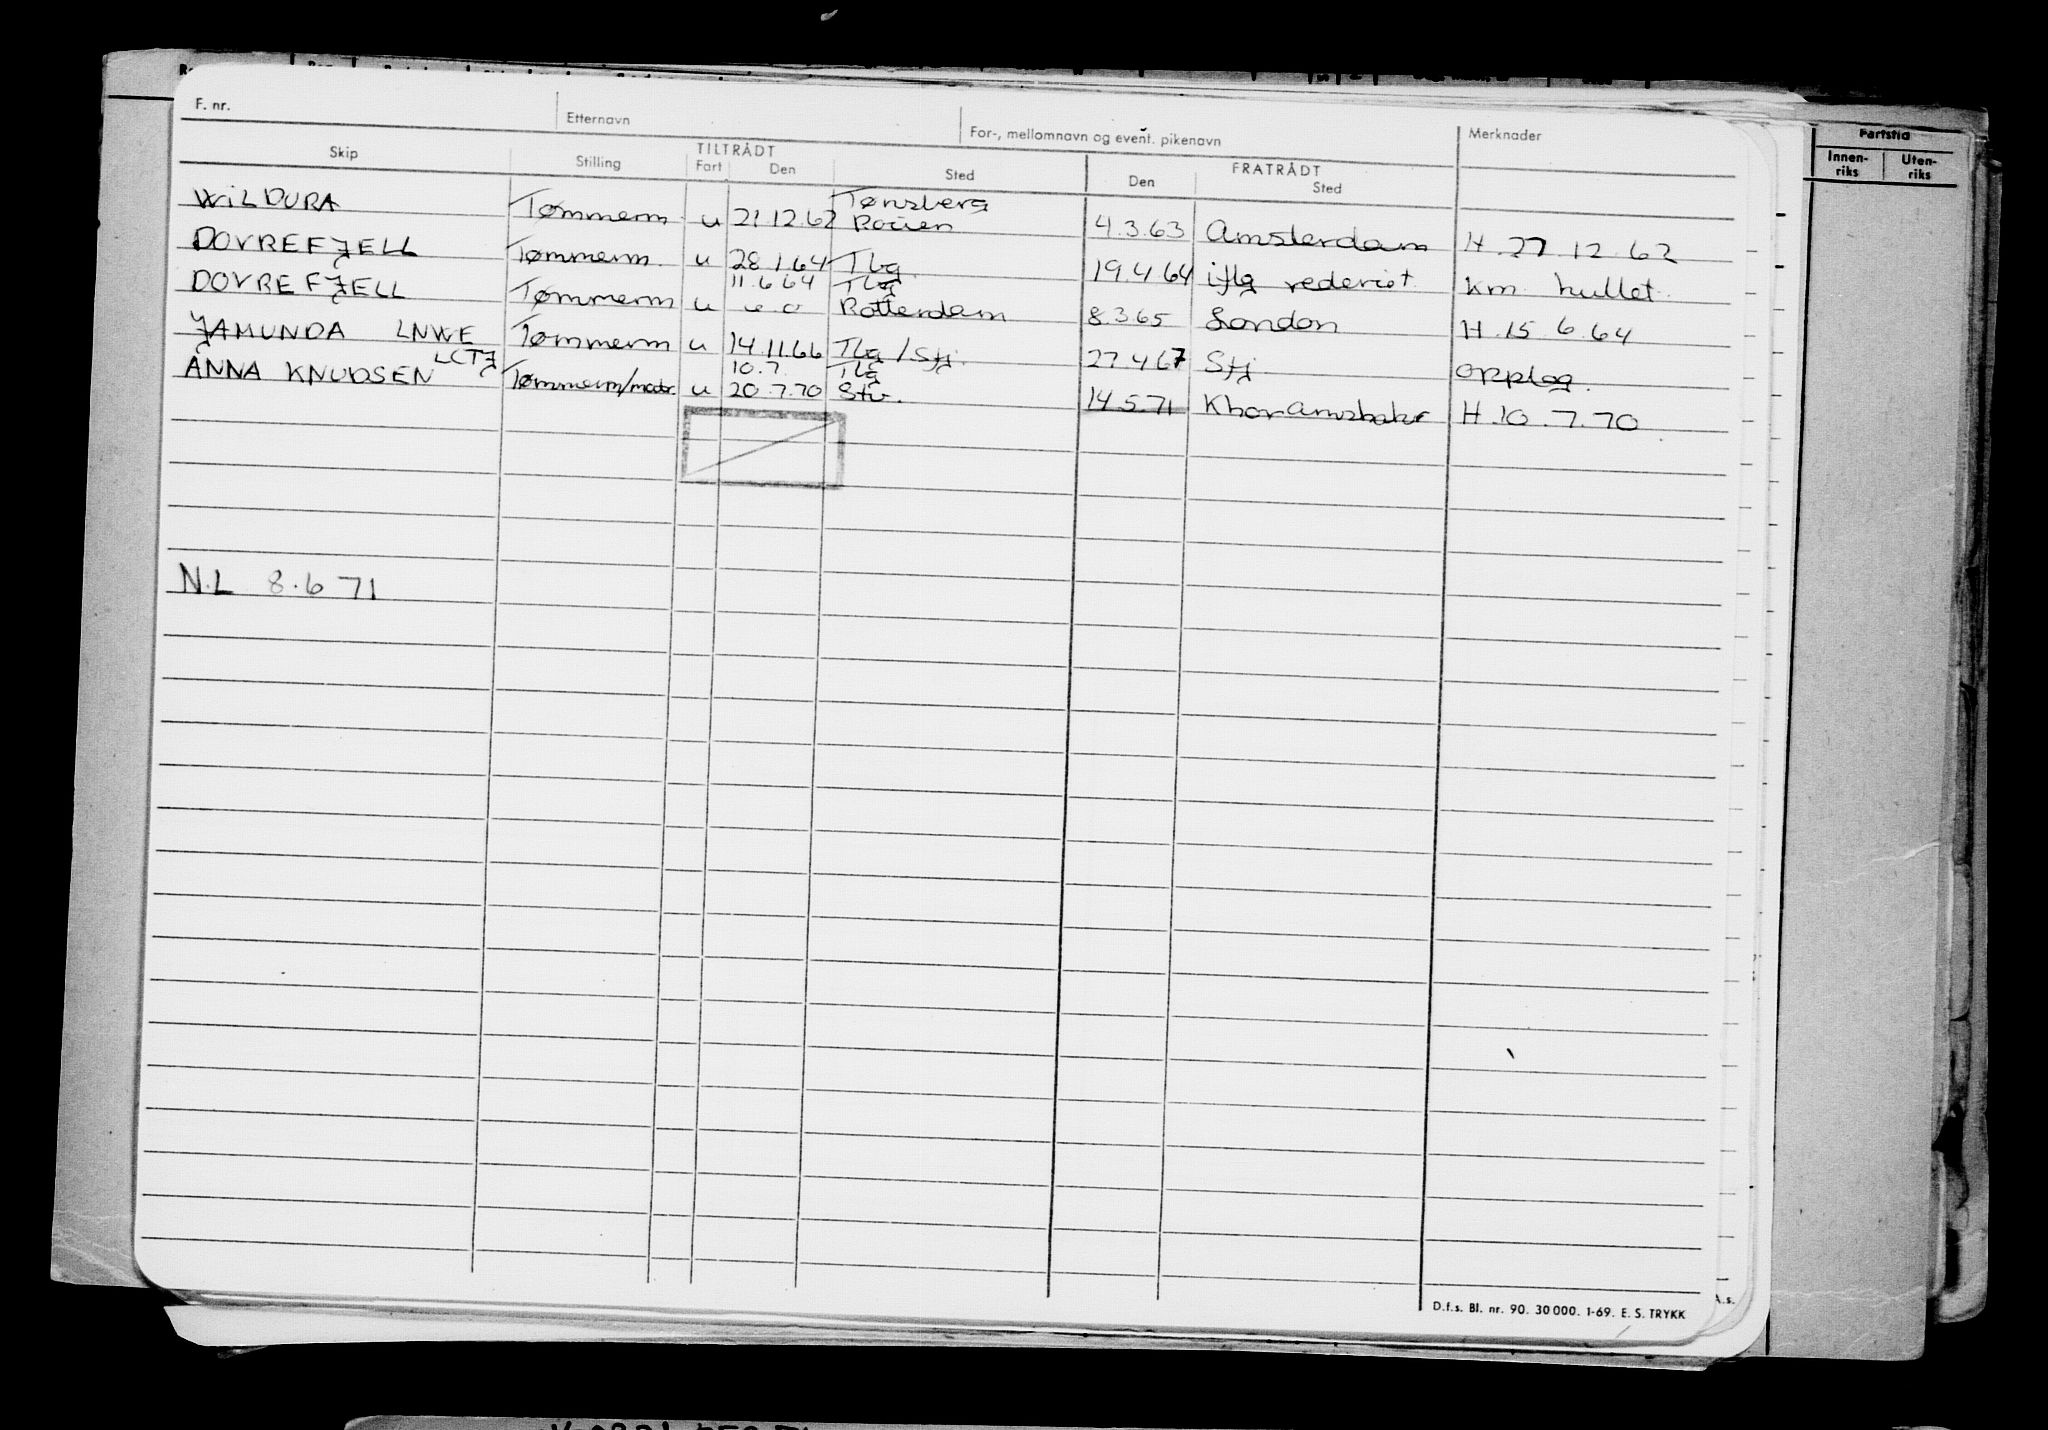 F. nr. Etternavn For-, mellomnavn og event. pikenavn Merknader
Skip Stilling TILTRÅDT Fart Den Sted FRATRÅDT Den Sted
Tønsberg
WILDURA Tømmerm u 21.12.62 Rouen 4.3.63 Amsterdam H.27.12.62
DOVREFJELL Tømmerm. u 28.1.64 Tbg. 19.4.64 iflg rederiet km hullet.
11.6.64 Tbg
DOVREFJELL Tømmerm u Rotterdam 8.3.65 London H.15.6.64
JAMUNDA LNWE Tømmerm u 14.11.66 Tbg/Stj. 27.4.67 Stj opplag.
LCTJ 10.7. Tbg
ANNA KNUDSEN Tømmerm/matr. u 20.7.70 Stv. 14.5.71 H.10.7.70
N.L 8.6 71
D.f.s. Bl. nr. 90. 30 000. 1-69. E. S. TRYKK
A.s.
Fartstid
Innen-riks Uten-riks